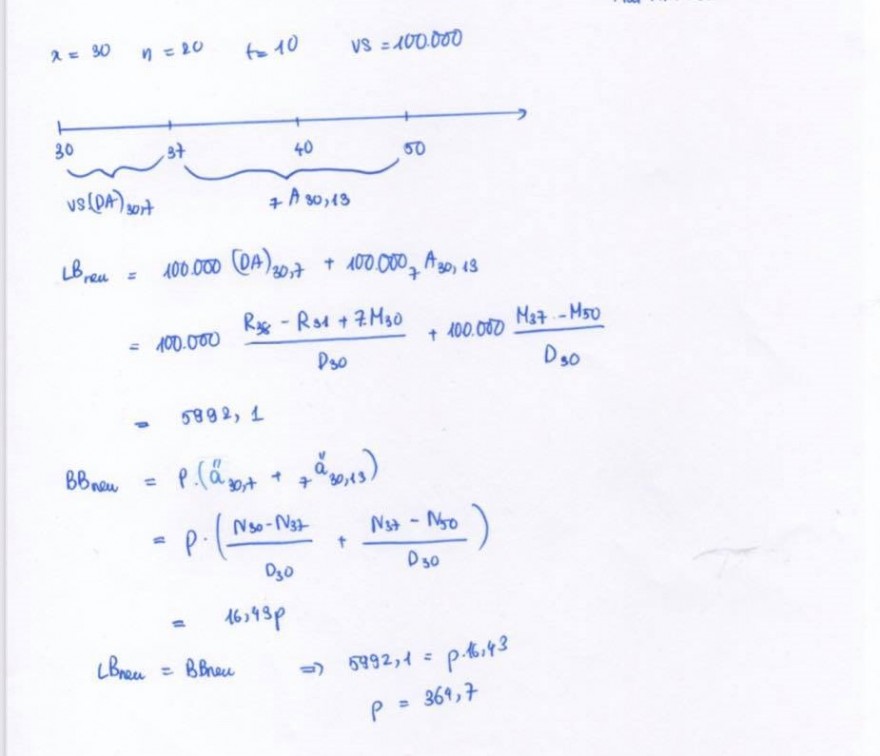 x = 30 n = 20 t = 10 VS = 100.000
30 37 40 50
VS(DA)30,7 7 A 30,13
LBneu = 100.000 (DA)30,7 + 100.000 7 A30,13
= 100.000 (R38 - R31 + 7 M30) / D30 + 100.000 (M37 - M50) / D30
= 5992,1
BBneu = P.(ä30,7 + 7 ä30,13)
= P.((N30-N37) / D30 + (N37 - N50) / D30)
= 16,43p
LBneu = BBneu => 5992,1 = p.16,43
P = 364,7